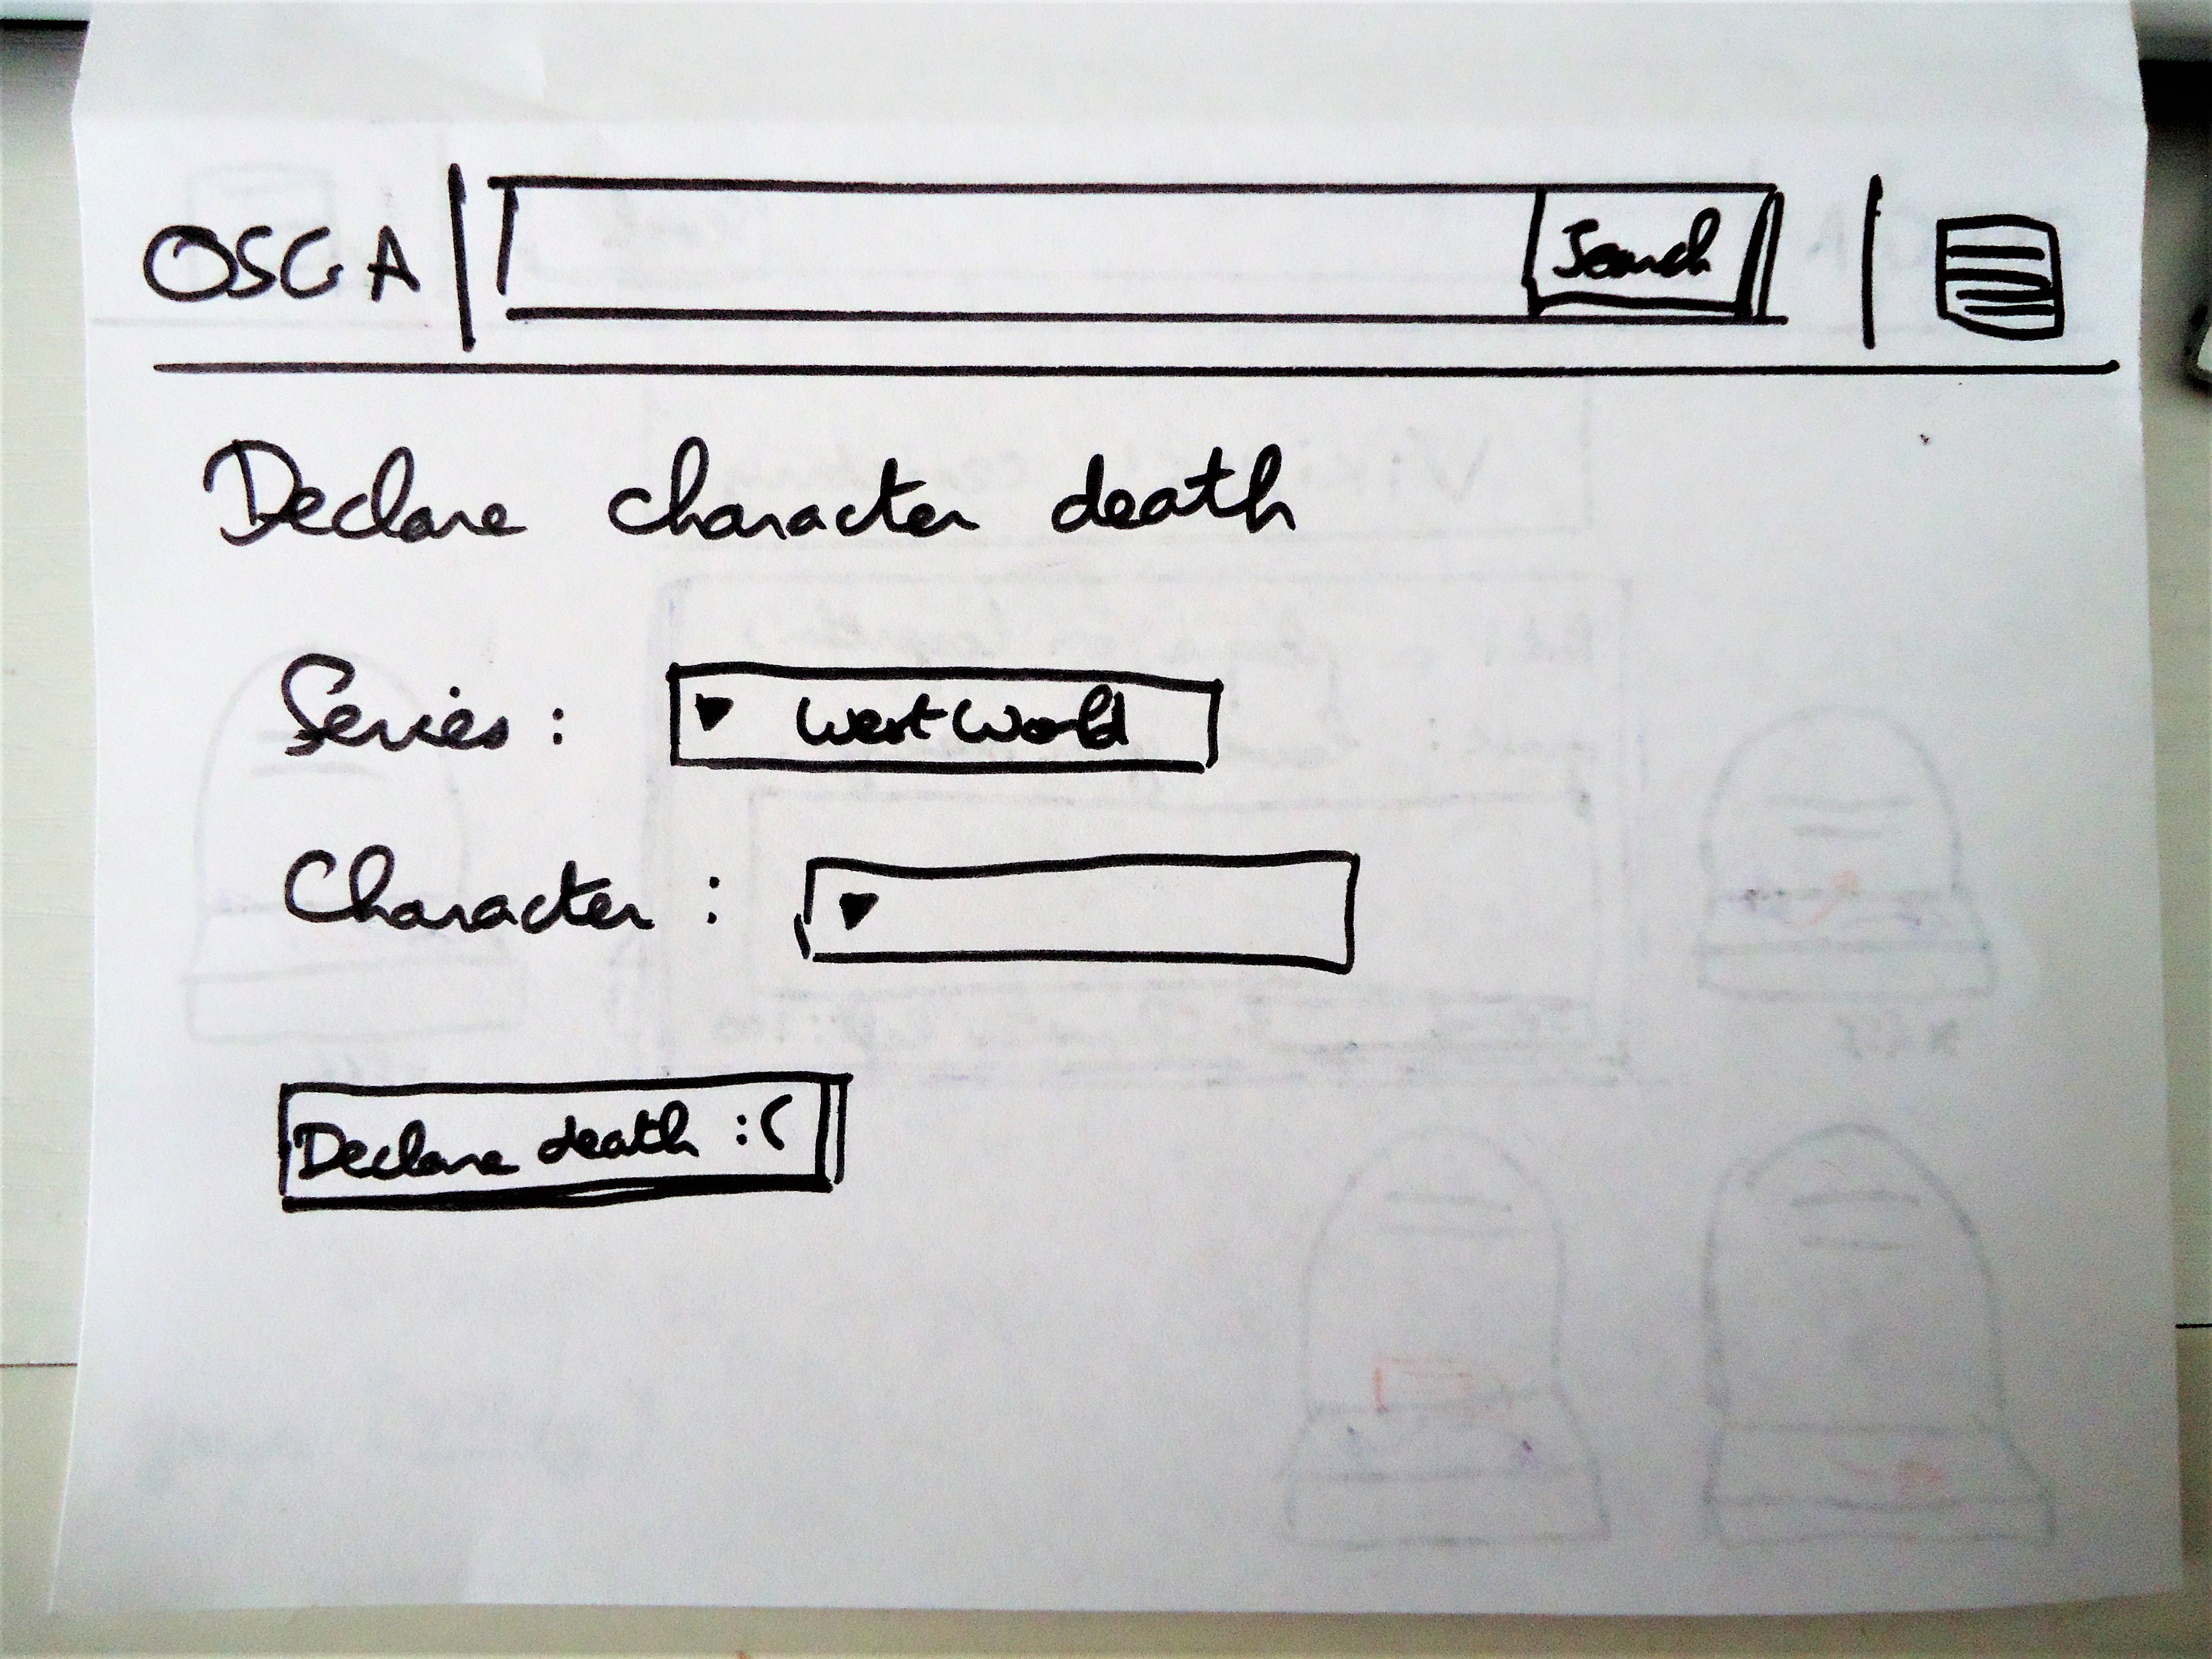 OSCA Search
Declare character death
Series : WestWorld
Character :
Declare death :(